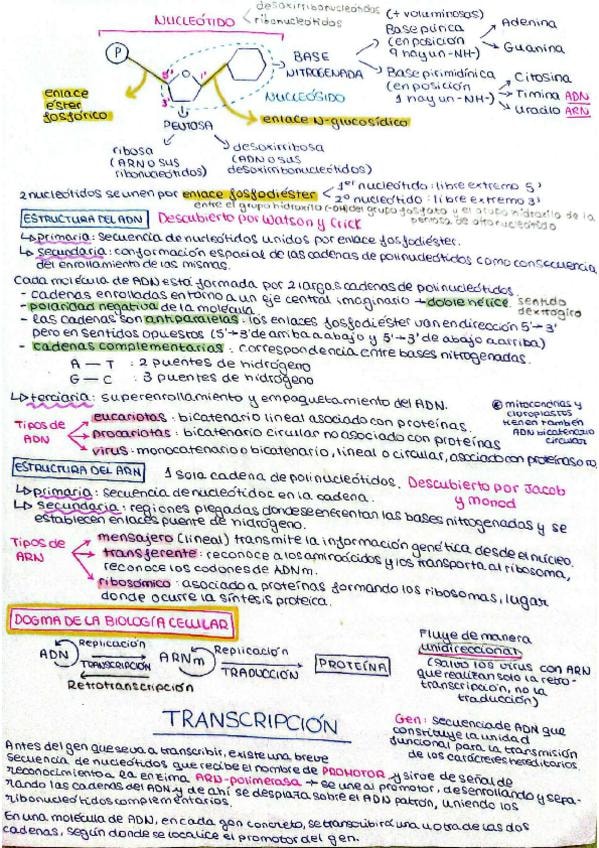 NUCLEÓTIDO
desoxirribonucleótidos
ribonucleótidos
(+ voluminosos)
Base púrica
(en posición
9 hay un -NH-)
Adenina
Guanina
P
5'
1'
3'
BASE
NITROGENADA
NUCLEÓSIDO
Base pirimidínica
(en posición
1 hay un -NH-)
Citosina
Timina ADN
Uracilo ARN
enlace
éster
fosfórico
enlace N-glucosídico
PENTOSA
ribosa
(ARN O SUS
ribonucleótidos)
desoxirribosa
(ADN O SUS
desoxirribonucleótidos)
2 nucleótidos se unen por enlace fosfodiéster
1er nucleótido: libre extremo 5'
2º nucleótido: libre extremo 3'
entre el grupo hidroxilo (-OH) del grupo fosfato y el grupo hidroxilo de la
pentosa de otro nucleótido
ESTRUCTURA DEL ADN Descubierto por Watson y Crick
primaria: secuencia de nucleótidos unidos por enlace fosfodiéster.
secundaria: conformación espacial de las cadenas de polinucleótidos como consecuencia
del enrollamiento de las mismas.
Cada molécula de ADN está formada por 2 largas cadenas de polinucleótidos
- cadenas enrolladas entorno a un eje central imaginario → doble hélice. sentido
dextrógiro
- polaridad negativa de la molécula
- las cadenas son antiparalelas: los enlaces fosfodiéster van en dirección 5'→3'
pero en sentidos opuestos (5'→3' de arriba a abajo y 5'→3' de abajo a arriba)
- cadenas complementarias: correspondencia entre bases nitrogenadas.
A — T : 2 puentes de hidrógeno
G — C : 3 puentes de hidrógeno
terciaria: superenrollamiento y empaquetamiento del ADN.
Tipos de
ADN
eucariotas: bicatenario lineal asociado con proteínas.
procariotas: bicatenario circular no asociado con proteínas
virus: monocatenario o bicatenario, lineal o circular, asociado con proteínas o no.
mitocondrias y
cloroplastos
tienen también
ADN bicatenario
circular
ESTRUCTURA DEL ARN 1 sola cadena de polinucleótidos. Descubierto por Jacob
y Monod
primaria: secuencia de nucleótidos en la cadena.
secundaria: regiones plegadas donde se enfrentan las bases nitrogenadas y se
establecen enlaces puente de hidrógeno.
Tipos de
ARN
mensajero (lineal) transmite la información genética desde el núcleo.
transferente: reconoce a los aminoácidos y los transporta al ribosoma,
reconoce los codones de ADNm.
ribosómico: asociado a proteínas formando los ribosomas, lugar
donde ocurre la síntesis proteica.
DOGMA DE LA BIOLOGÍA CELULAR
Replicación
ADN
TRANSCRIPCIÓN
Retrotranscripción
ARNm
Replicación
TRADUCCIÓN
PROTEÍNA
Fluye de manera
unidireccional
(salvo los virus con ARN
que realizan solo la retro-
transcripción, no la
traducción)
TRANSCRIPCIÓN
Gen: secuencia de ADN que
constituye la unidad
funcional para la transmisión
de los carácteres hereditarios.
Antes del gen que se va a transcribir, existe una breve
secuencia de nucleótidos que recibe el nombre de PROMOTOR y sirve de señal de
reconocimiento a la enzima ARN-polimerasa → se une al promotor, desenrollando y sepa-
rando las cadenas del ADN y de ahí se desplaza sobre el ADN patrón, uniendo los
ribonucleótidos complementarios.
En una molécula de ADN, en cada gen concreto, se transcribirá una u otra de las dos
cadenas, según donde se localice el promotor del gen.